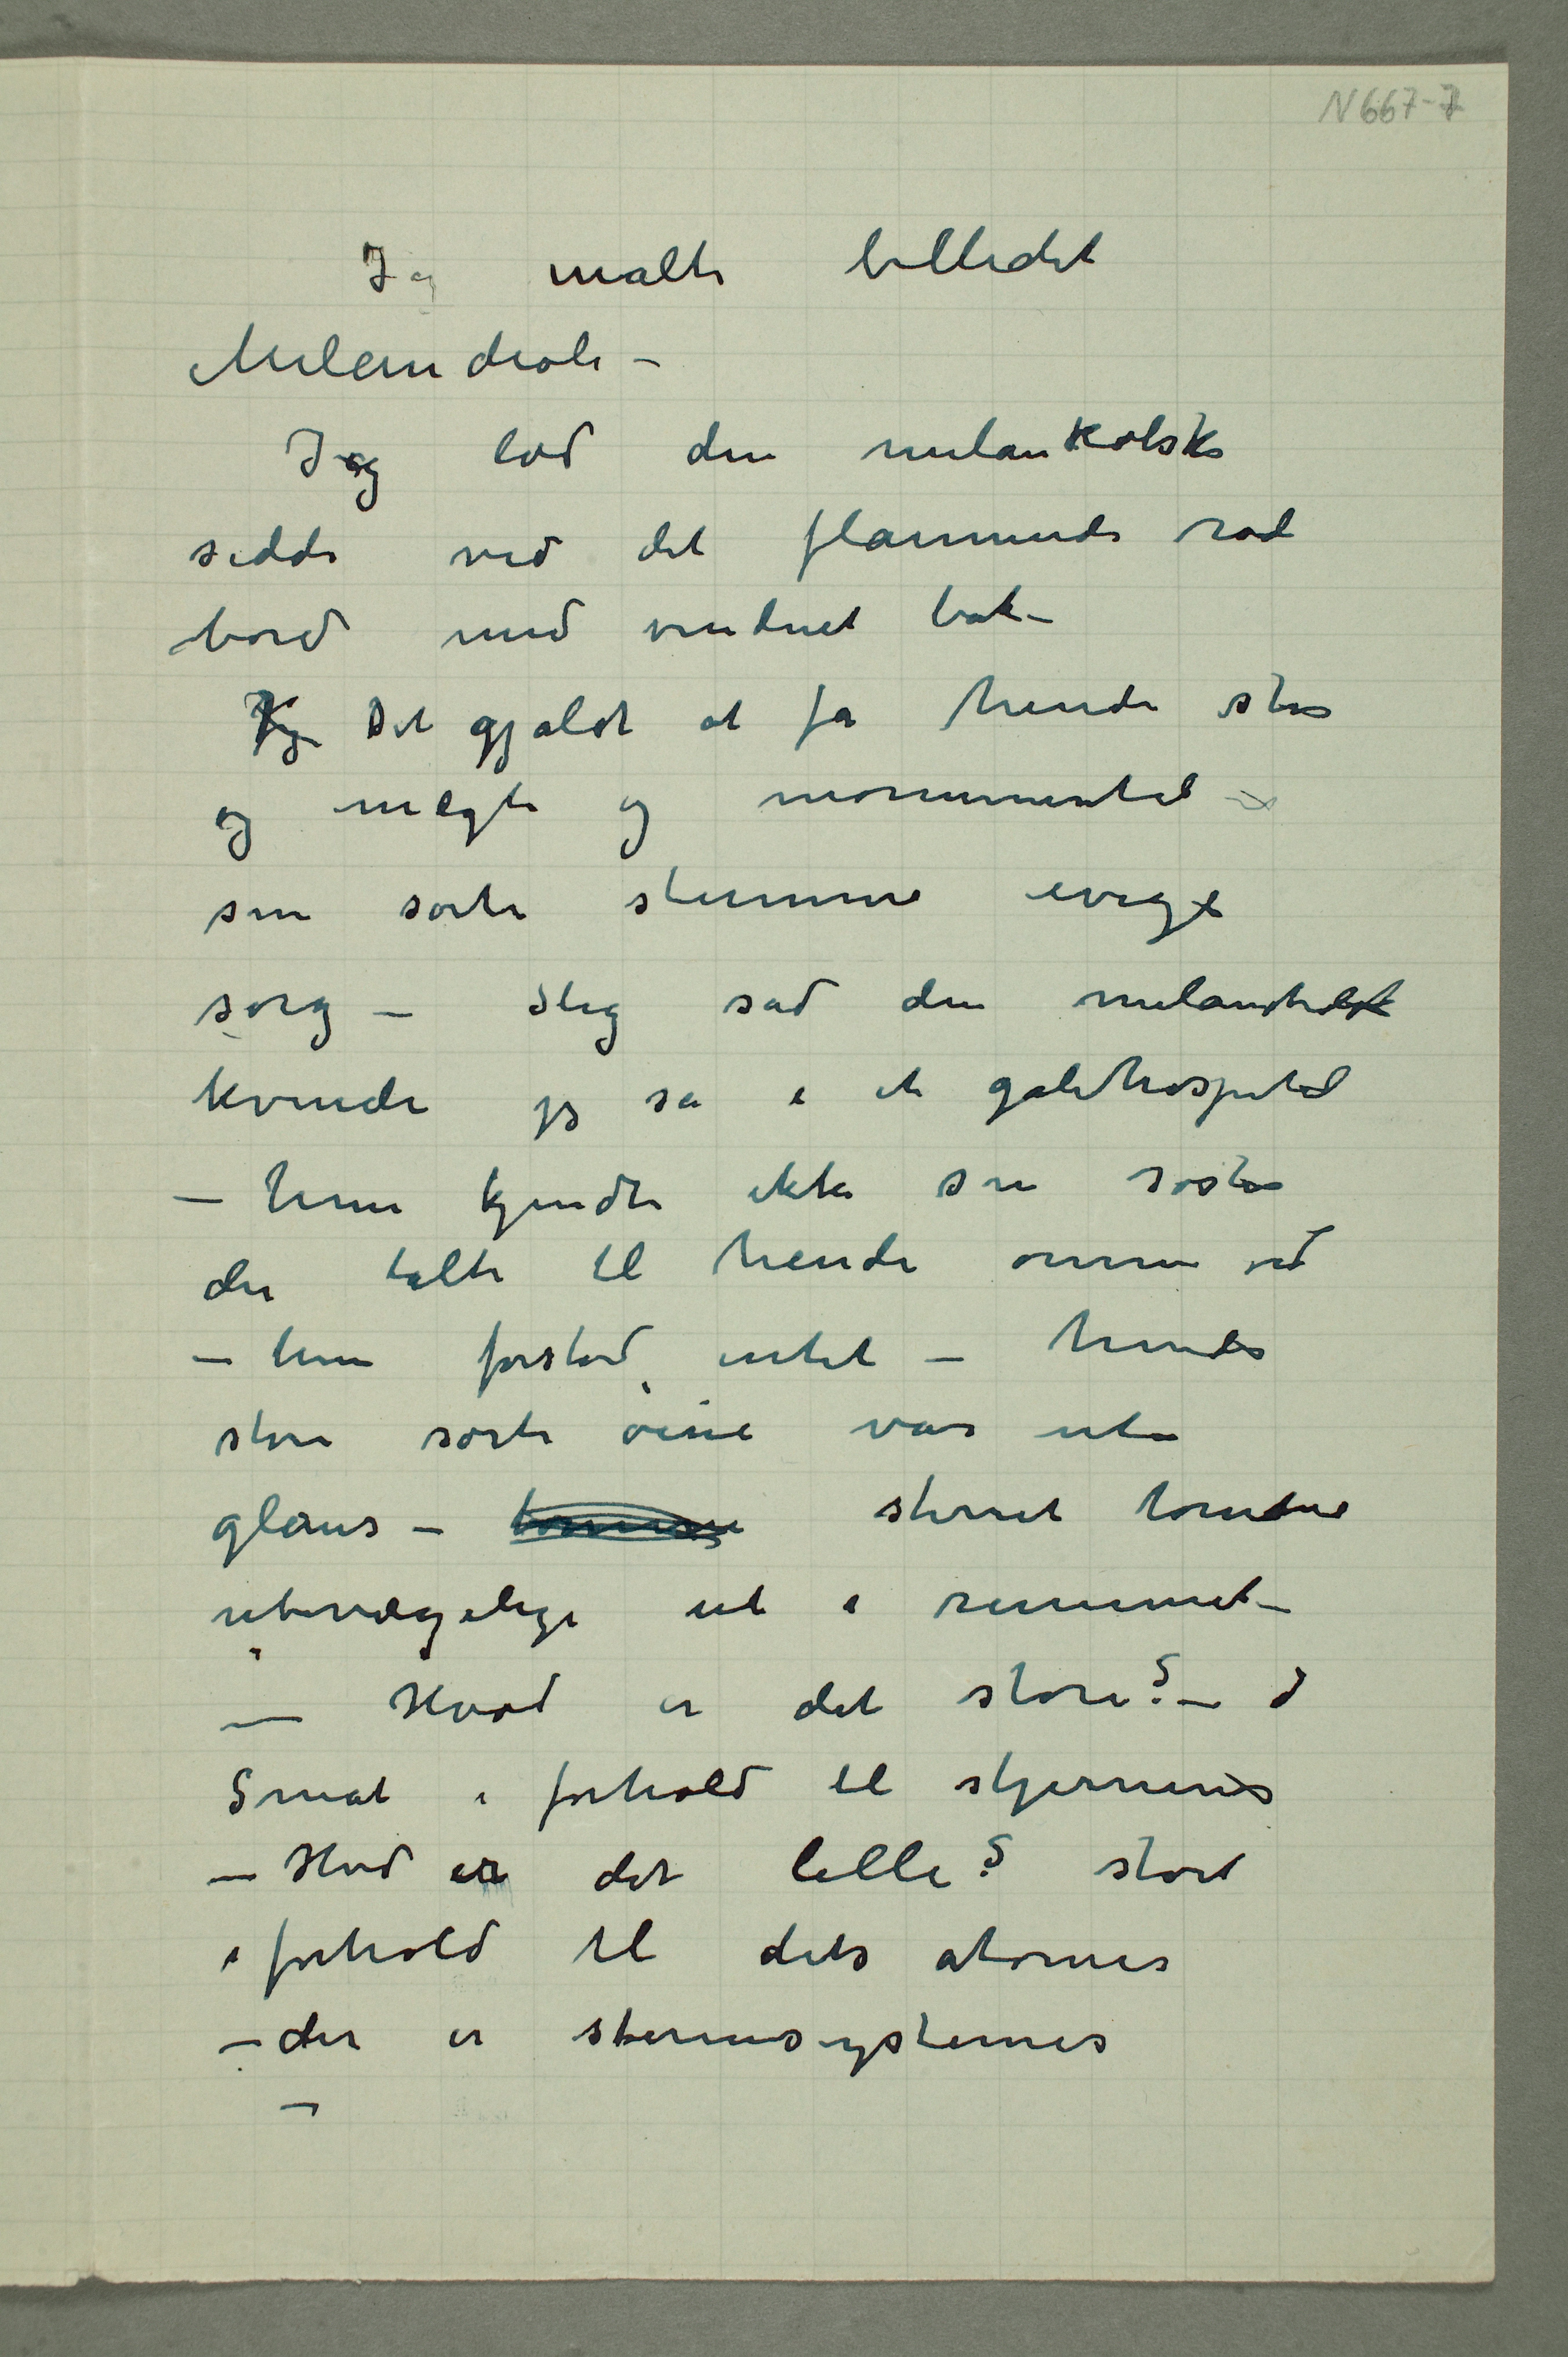 N 667-7
Jeg malte billedet
Melankoli –
Jeg lod den melankolske
sidde ved det flammende rød
bord med vinduet bak –
Det gjaldt at få hende stor
og mægti og monumental –
som sorte stumme evige
sorg – Slig sad den melankolsk
kvinde jeg så i et galehospital
– hun kjendte ikke sin søster
der talte til hende ømme ord
– hun forstod intet – hendes
store sorte øine var uten
glans – stirret
ubevægelige ut i rummet –
– Hvad er det store? –
Småt i forhold til stjernene
– Hvad er det lille? stort
i forhold til dets atomer
– der er sternesystemer
–